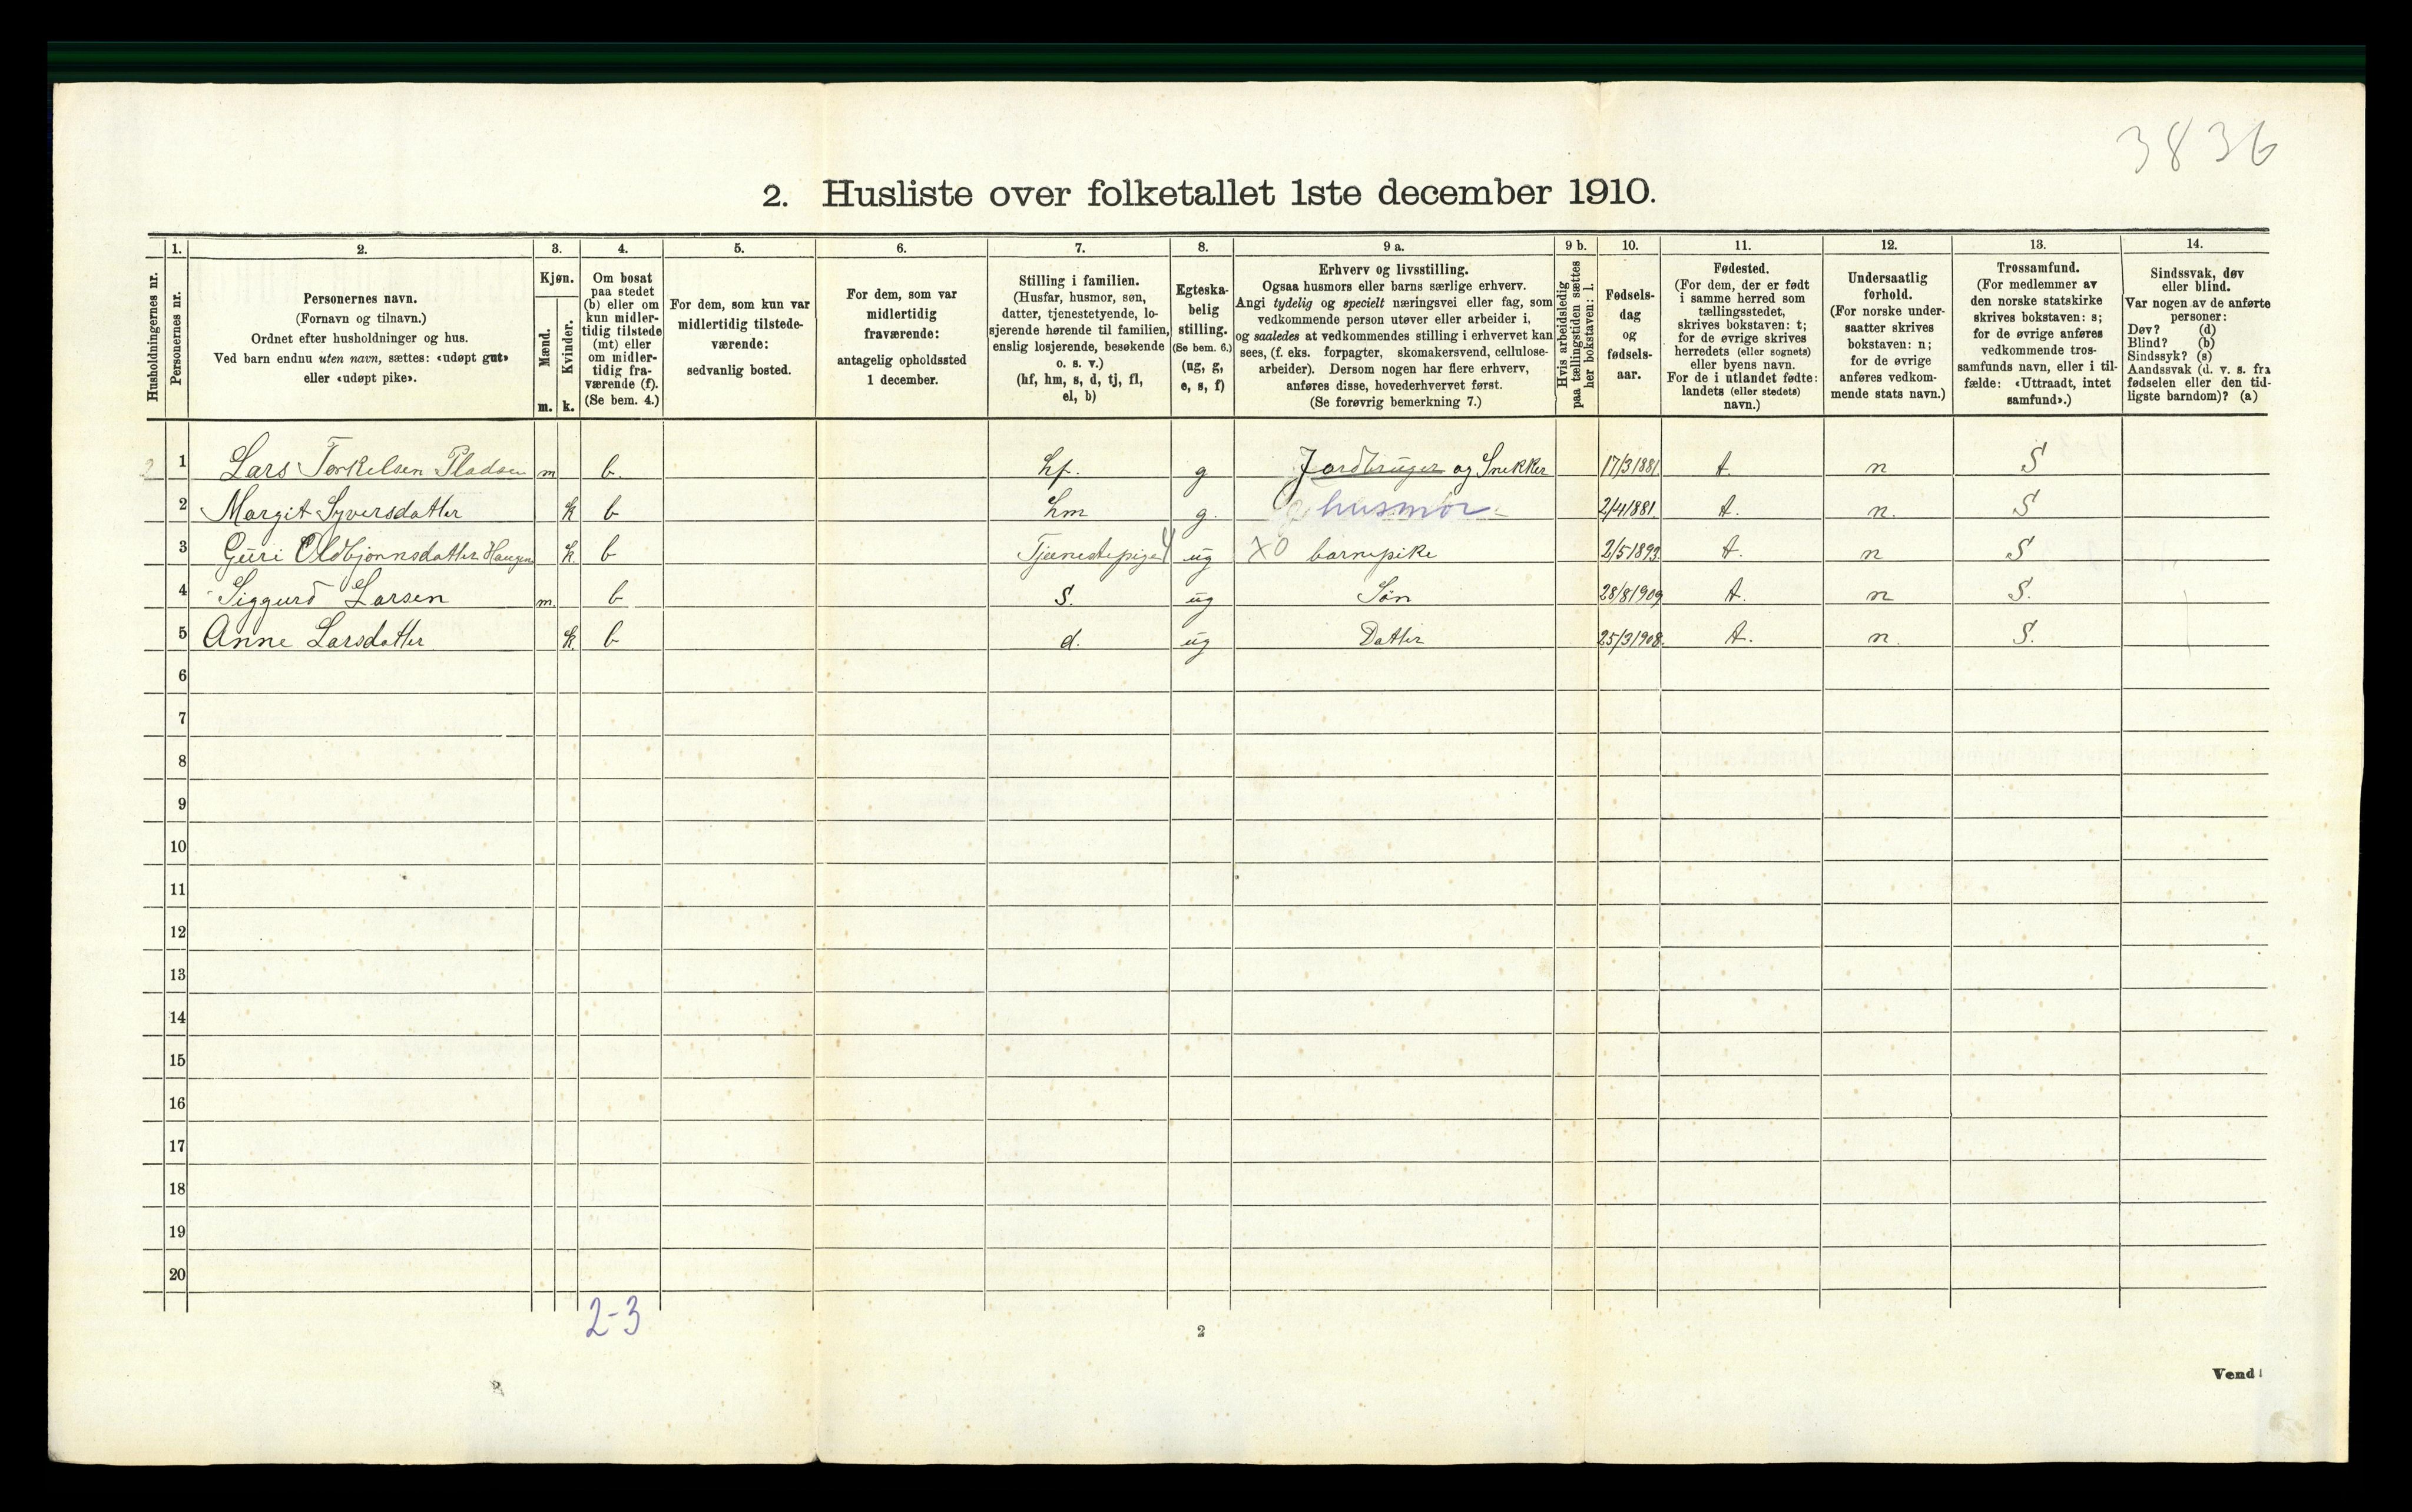 3836
2. Husliste over folketallet 1ste december 1910.
Husholdningernes nr.
1.
Personernes nr.
2.
Personernes navn.
(Fornavn og tilnavn.)
Ordnet efter husholdninger og hus.
Ved barn endnu uten navn, sættes: «udøpt gut»
eller «udøpt pike».
3.
Kjøn.
Mænd.
Kvinder.
m. k.
4.
Om bosat
paa stedet
(b) eller om
kun midler-
tidig tilstede
(mt) eller
om midler-
tidig fra-
værende (f).
(Se bem. 4.)
5.
For dem, som kun var
midlertidig tilstede-
værende:
sedvanlig bosted.
6.
For dem, som var
midlertidig
fraværende:
antagelig opholdssted
1 december.
7.
Stilling i familien.
(Husfar, husmor, søn,
datter, tjenestetyende, lo-
sjerende hørende til familien,
enslig losjerende, besøkende
o. s. v.)
(hf, hm, s, d, tj, fl,
el, b)
8.
Egteska-
belig
stilling.
(Se bem. 6.)
(ug, g,
e, s, f)
9 a.
Erhverv og livsstilling.
Ogsaa husmors eller barns særlige erhverv.
Angi tydelig og specielt næringsvei eller fag, som
vedkommende person utøver eller arbeider i,
og saaledes at vedkommendes stilling i erhvervet kan
sees, (f. eks. forpagter, skomakersvend, cellulose-
arbeider). Dersom nogen har flere erhverv,
anføres disse, hovederhvervet først.
(Se forøvrig bemerkning 7.)
9 b.
Hvis arbeidsledig
paa tællingstiden sættes
her bokstaven: l.
10.
Fødsels-
dag
og
fødsels-
aar.
11.
Fødested.
(For dem, der er født
i samme herred som
tællingsstedet,
skrives bokstaven: t;
for de øvrige skrives
herredets (eller sognets)
eller byens navn.
For de i utlandet fødte:
landets (eller stedets)
navn.)
12.
Undersaatlig
forhold.
(For norske under-
saatter skrives
bokstaven: n;
for de øvrige
anføres vedkom-
mende stats navn.)
13.
Trossamfund.
(For medlemmer av
den norske statskirke
skrives bokstaven: s;
for de øvrige anføres
vedkommende tros-
samfunds navn, eller i til-
fælde: «Uttraadt, intet
samfund».)
14.
Sindssvak, døv
eller blind.
Var nogen av de anførte
personer:
Døv? (d)
Blind? (b)
Sindssyk? (s)
Aandssvak (d. v. s. fra
fødselen eller den tid-
ligste barndom)? (a)
2 1 Lars Torkelsen Pladsen m b. hf. g Jordbruger og Snekker 17/3 1881. t. n S
2 Margit Syversdatter k b hm g. husmor 2/4 1881. t. n. S
3 Guri Oldbjønnsdatter Haugen k. b Tjenestepige ug X0 barnepike 2/5 1893. t. n S
4 Siggurd Larsen m. b s. ug Søn 28/8 1909 t. n S.
5 Anne Larsdatter k. b d. ug Datter 25/3 1908. t. n. S.
6
7
8
9
10
11
12
13
14
15
16
17
18
19
20
2-3
2
Vend!